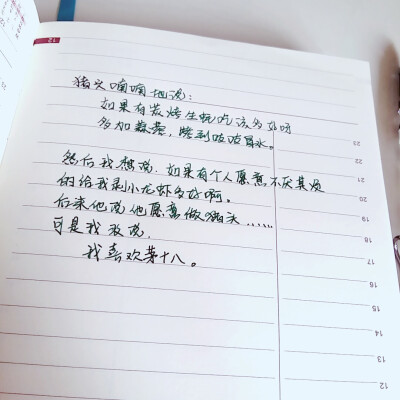 12
猪头喃喃地说:
如果有炭烤生蚝吃该多好呀
多加蒜蓉,烤到吱吱冒水。
然后我想说,如果有个人愿意不厌其烦
的给我剥小龙虾多好啊。
后来他说他愿意做猪头……
可是我没说,
我喜欢茅十八。
23
22
21
20
19
18
17
16
15
14
13
12